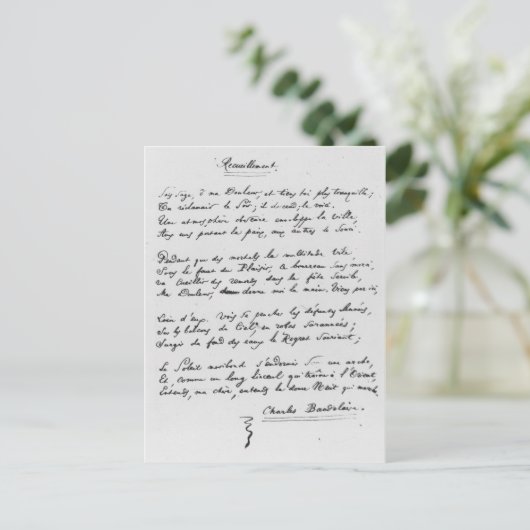 Recueillement.
Sois sage, ô ma Douleur, et tiens toi plus tranquille;
Tu réclamais le Soir; il descend; le voici.
Une atmosphère obscure enveloppe la ville,
Aux uns portant la paix, aux autres le souci.
Pendant que des mortels la multitude vile,
Sous le fouet du Plaisir, ce bourreau sans merci,
Va cueillir des remords dans la fête servile,
Ma Douleur, donne moi la main. Viens par ici,
Loin d'eux. Vois se pencher les défuntes Années,
Sur les balcons du Ciel, en robes surannées;
Surgir du fond des eaux le Regret souriant;
Le Soleil moribond s'endormir sous une arche,
Et, comme un long linceul qui traîne à l'Orient,
Entends, ma chère, entends la douce Nuit qui marche.
Charles Baudelaire.